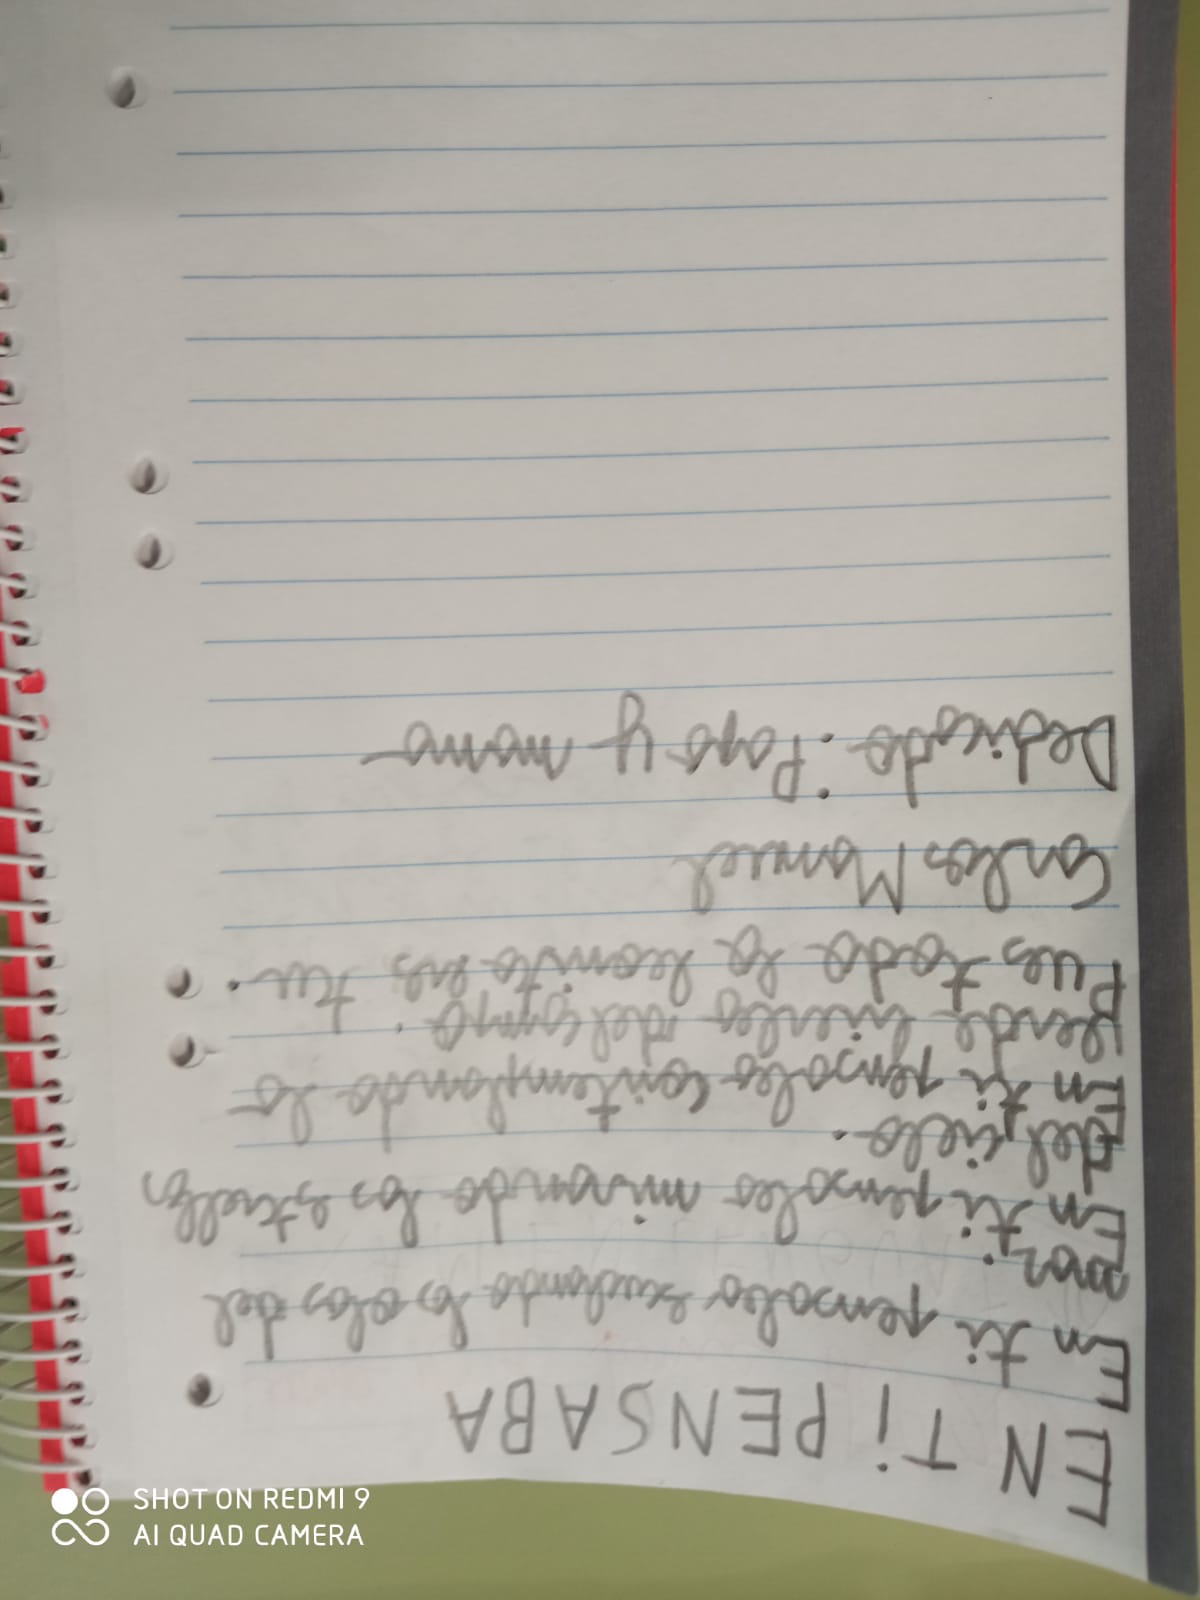 EN Ti PENSABA
En ti pensaba escuchando las olas del
mar.
En ti pensaba mirando las estrellas
del cielo.
En ti pensaba contemplando la
verde hierba del campo.
Pues todo lo bonito eres tu.
Carlos Manuel
Dedicado: Papa y mama
SHOT ON REDMI 9
AI QUAD CAMERA